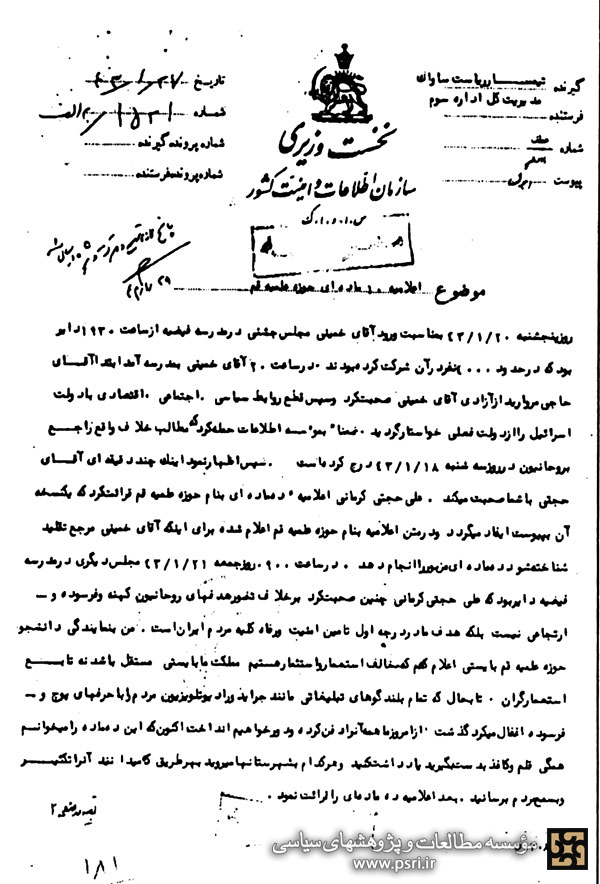 گیرنده تیمسار ریاست ساواک
مدیریت کل اداره سوم
فرستنده
شماره
پیوست
تاریخ
شماره
شماره پرونده گیرنده
شماره پرونده فرستنده
نخست وزیری
سازمان اطلاعات و امنیت کشور
س.ا.و.ا.ک
موضوع اعلامیه ۱۰ ماده ای حوزه علمیه قم
روز پنجشنبه ۴۳/۱/۲۰ بمناسبت ورود آقای خمینی مجلس جشنی در مدرسه فیضیه از ساعت ۱۹۳۰ دایر
بود که در حدود نفر در آن شرکت کرده بودند ۰ در ساعت ۲۰ آقای خمینی بمدرسه آمد ابتدا آقای
حاجی مروارید از آزادی آقای خمینی صحبت کرد وسپس قطع روابط سیاسی ۰ اجتماعی ۰ اقتصادی با دولت
اسرائیل را از دولت فعلی خواستار گردید ۰ ضمناً بموسسه اطلاعات حمله کرد که مطالب خلاف واقع راجع
بروحانیون در روز سه شنبه ۴۳/۱/۱۸ درج کرده است ۰ سپس اظهار نمود اینک چند دقیقه ای آقای
حجتی با شما صحبت میکند ۰ علی حجتی کرمانی اعلامیه ده ماده ای بنام حوزه علمیه قم قرائت کرد که یکنسخه
آن بپیوست ایفاد میگردد ودر متن اعلامیه بنام حوزه علمیه قم اعلام شده برای اینکه آقای خمینی مرجع تقلید
شناخته شود ده ماده ای مزبور را انجام دهد ۰ در ساعت ۹۰۰ روز جمعه ۴۳/۱/۲۱ مجلس دیگری در مدرسه
فیضیه دایر بود که علی حجتی کرمانی چنین صحبت کرد برخلاف تصور هدفهای روحانیون کهنه وفرسوده و
ارتجاعی نیست بلکه هدف ما در درجه اول تامین امنیت ورفاه کلیه مردم ایران است ۰ من بنمایندگی دانشجو
حوزه علمیه قم بایستی اعلام کنم که مخالف استعمار واستثمار هستیم مملکت ما بایستی مستقل باشد نه تابع
استعمارگران ۰ تا بحال که تمام بلندگوهای تبلیغاتی مانند جراید ورادیو تلویزیون مردم را با حرفهای پوچ و
فرسوده اغفال میکرد گذشت ۰ از امروز ما همه آنرا دفن کرده ودور خواهیم انداخت اکنون که این ده ماده را میخوانم
همگی قلم وکاغذ بدست بگیرید یادداشت کنید وهرکدام بشهرستانها میروید بهر طریق که میدانند آنرا تکثیر
وبسمع مردم برسانید ۰ بعد اعلامیه ده ماده ای را قرائت نمود ۰
۱۸۱
مؤسسه مطالعات و پژوهشهای سیاسی
www.psri.ir